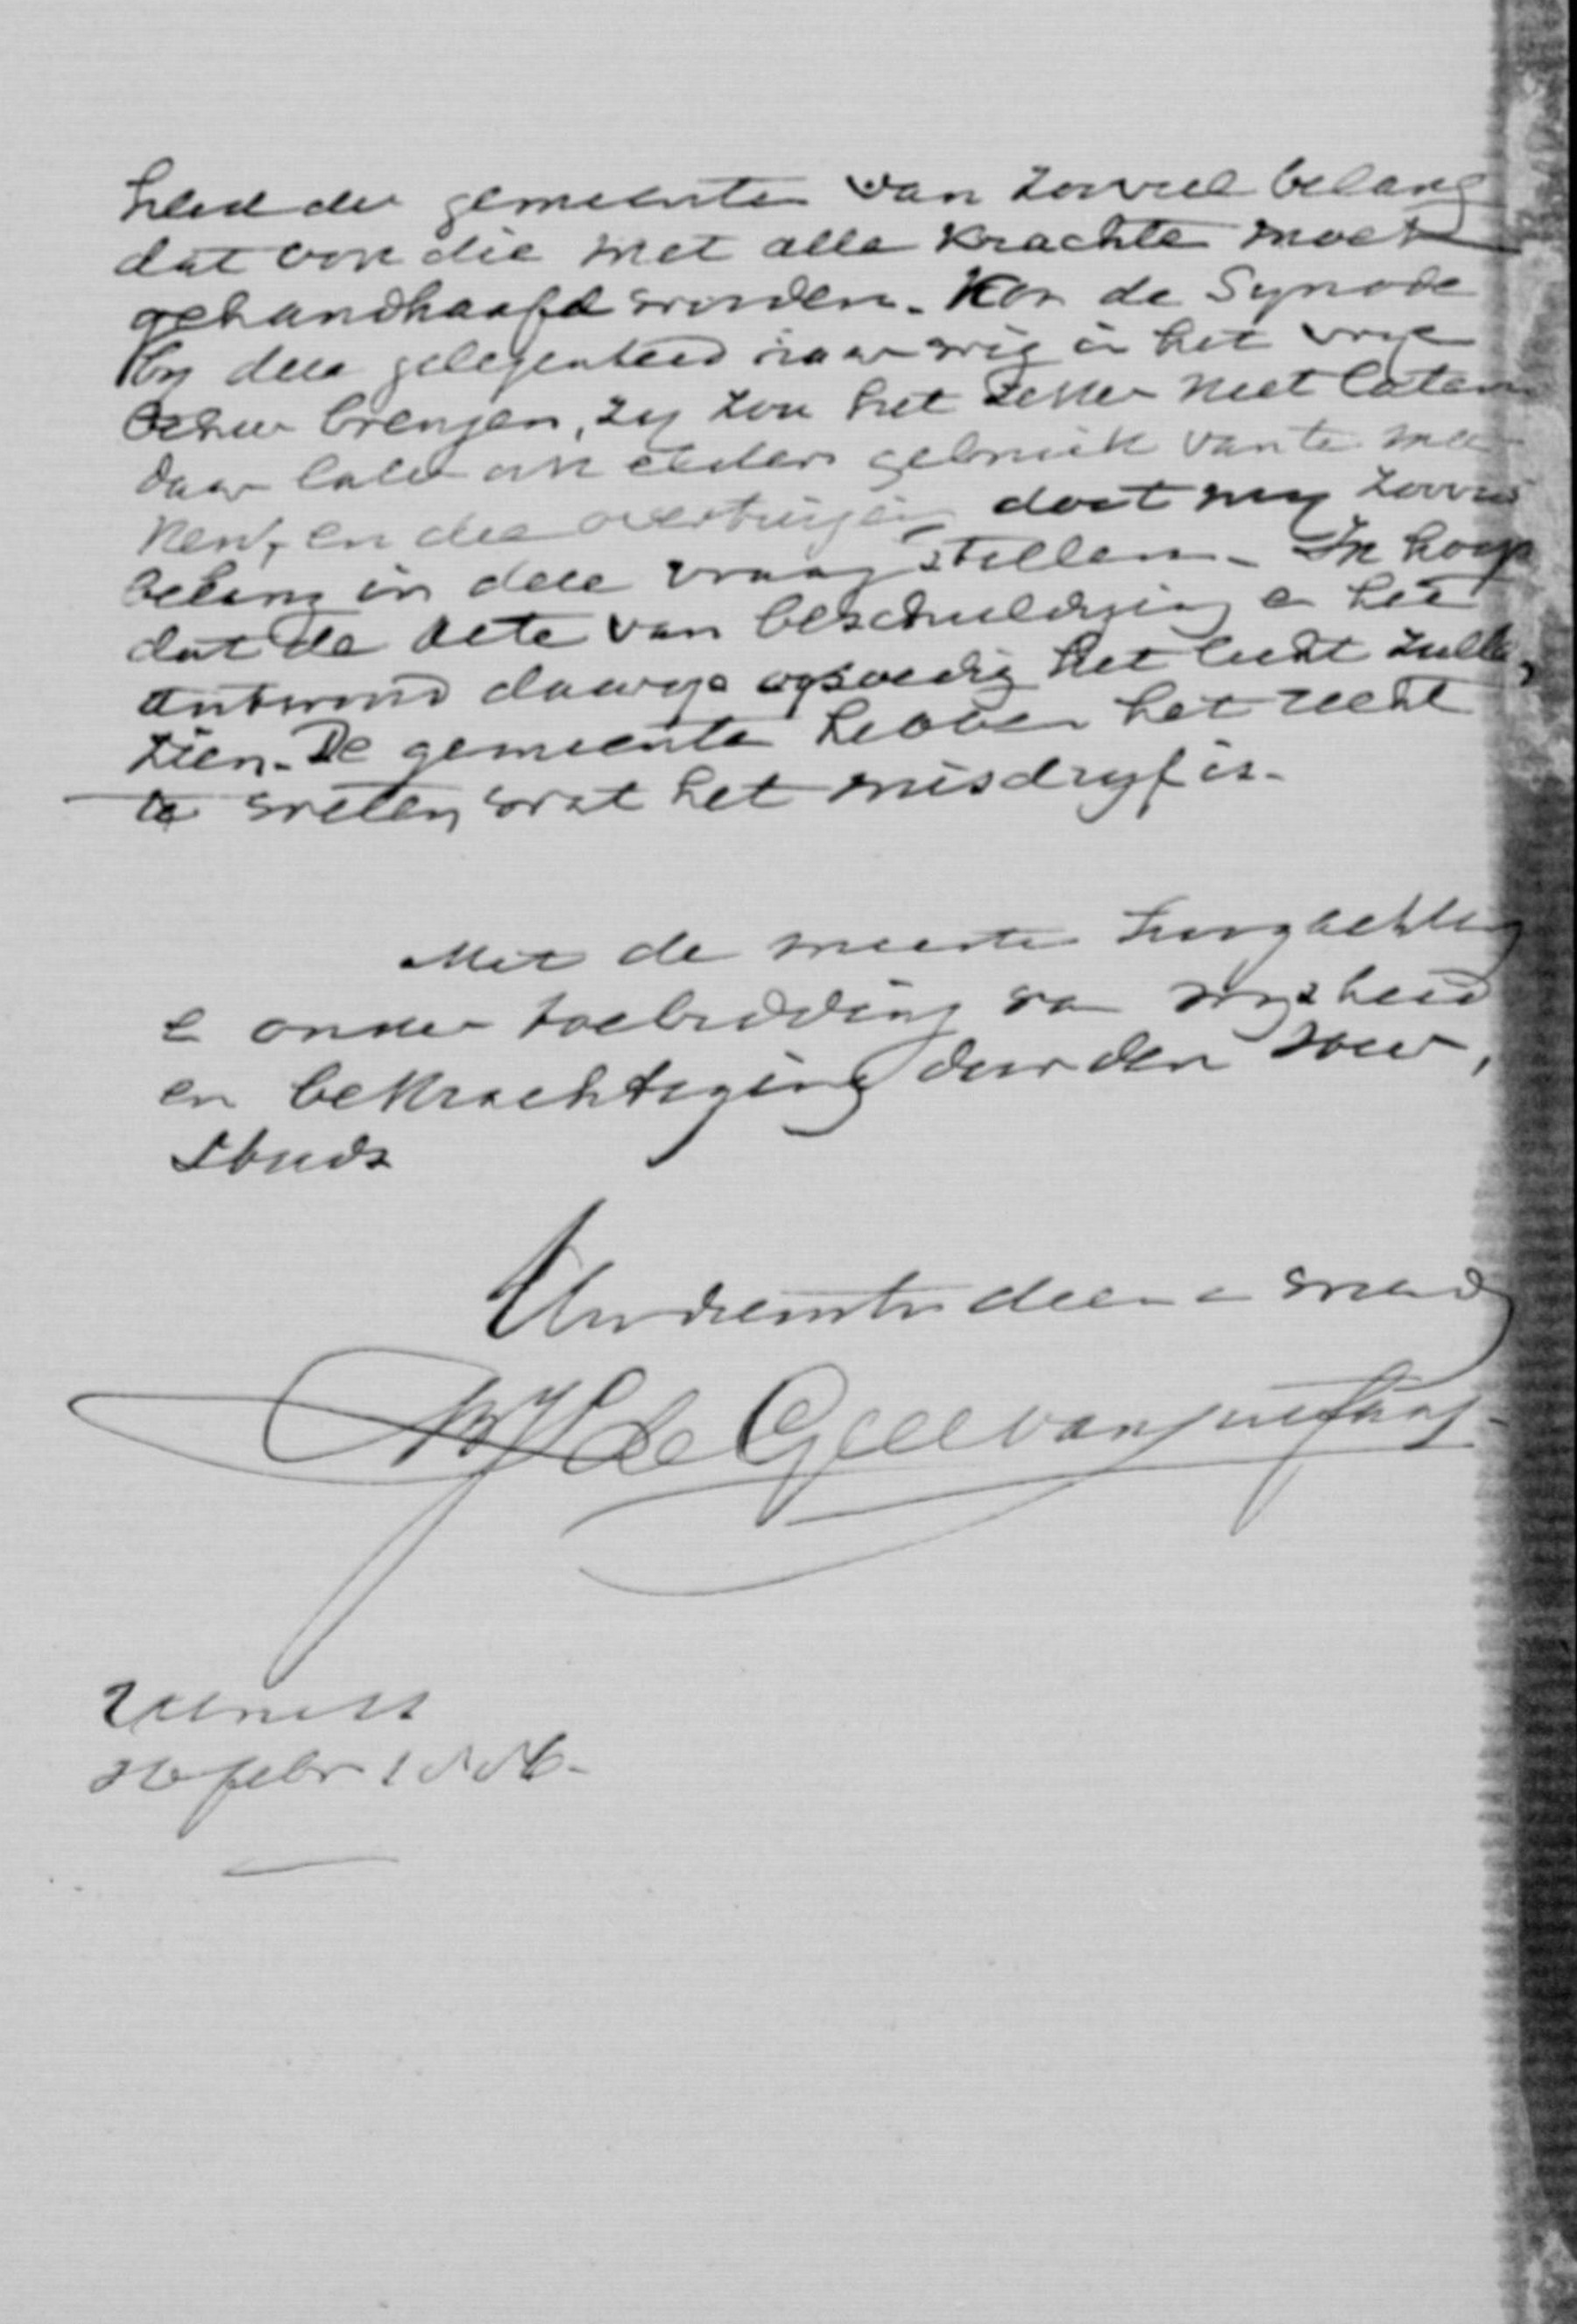 heid der gemeenten van zooveel belang
dat ook die met alle krachten moet
gehandhaafd worden. Kon de Synode
by deze gelegenheid haar wig in het vrye
beheer brengen, zy zou het zeker niet laten
daar later ook elders gebruik van te ma
ken, en die overtuiging doet my zooveel
belang in deze vraag stellen. Ik hoop
dat de acte van beschuldiging en het
antwoord daarop spoedig het licht zullen
zien. De gemeenten hebben het recht
te weten wat het misdryf is.
Met de meeste hoogachting
en onder toebidding van wysheid
en bekrachtiging door den Heer,
steeds
Uw dienstw. dien. en vriend
de Geer van Jutfaas
Utrecht
26 febr 1886.